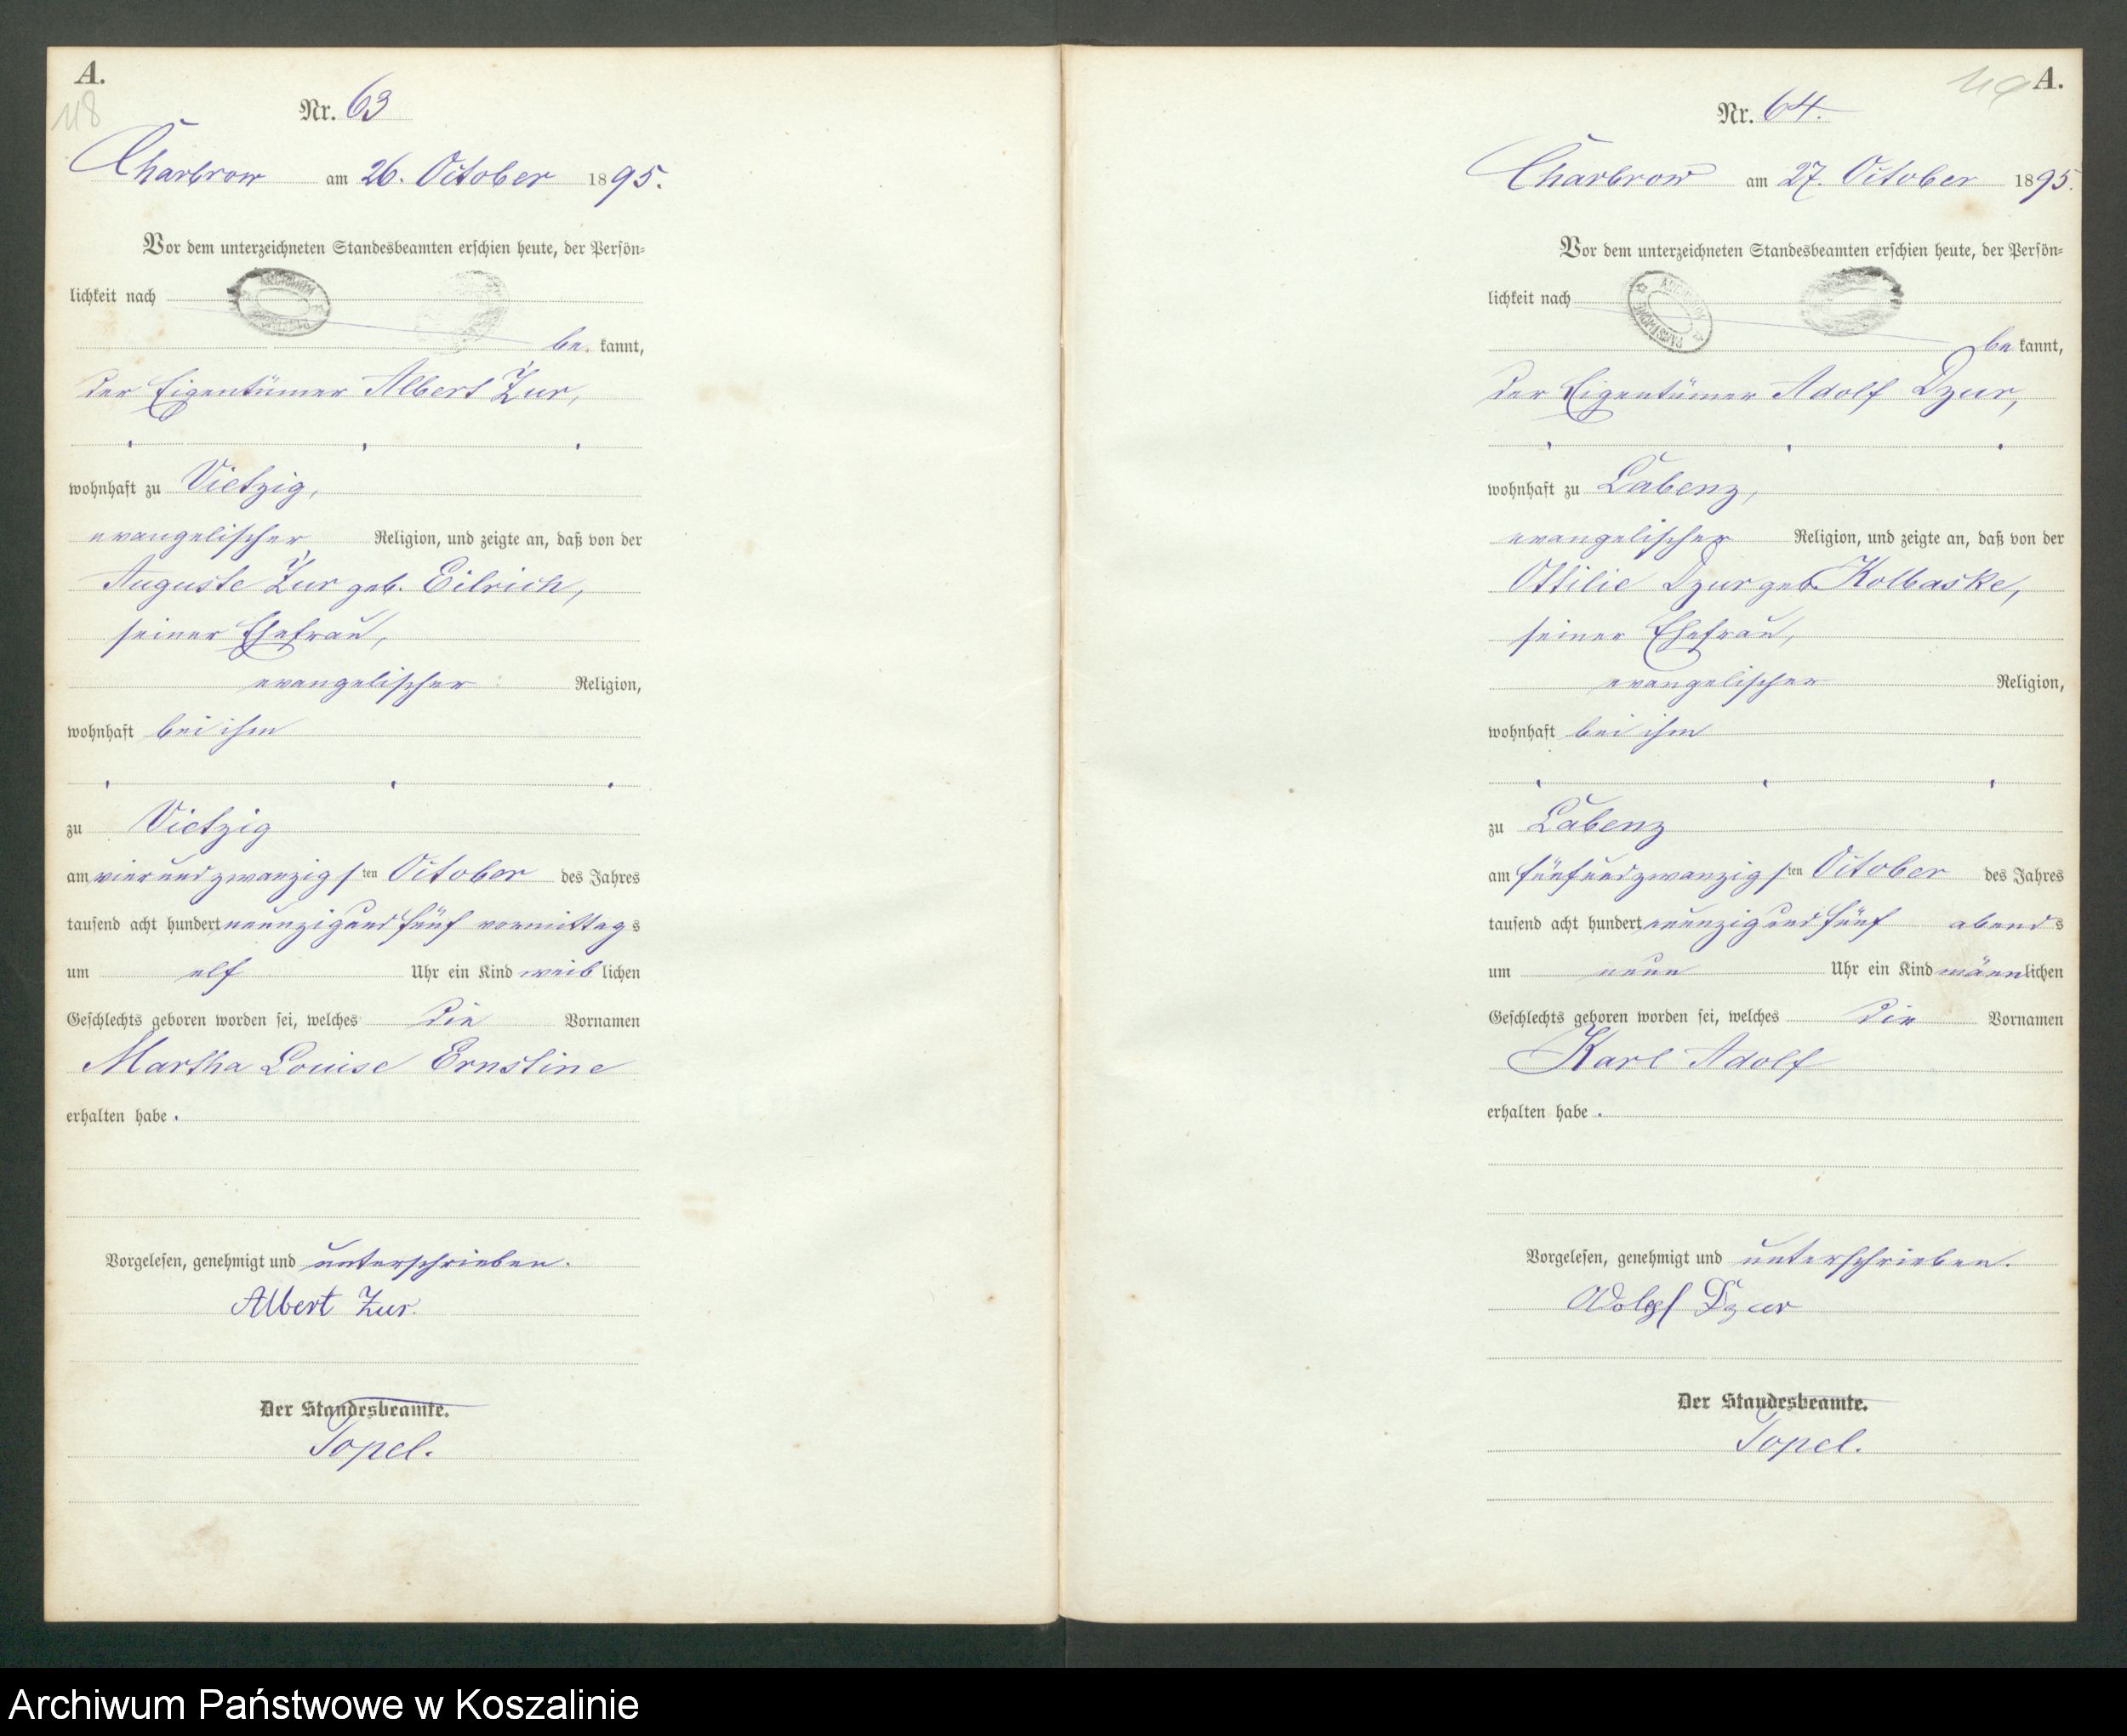 A.
118
Nr. 63
Charbrow am 26. October 1895.
Vor dem unterzeichneten Standesbeamten erschien heute, der Persön-
lichkeit nach
be kannt,
der Eigentümer Albert Zur,
wohnhaft zu Vietzig,
evangelischer Religion, und zeigte an, daß von der
Auguste Zur geb. Eilrich,
seiner Ehefrau,
evangelischer Religion,
wohnhaft bei ihm
zu Vietzig
am vierundzwanzigsten October des Jahres
tausend acht hundert neunzig und fünf vormittags
um elf Uhr ein Kind weiblichen
Geschlechts geboren worden sei, welches die Vornamen
Martha Louise Ernstine
erhalten habe.
Vorgelesen, genehmigt und unterschrieben.
Albert Zur.
Der Standesbeamte.
Topel.
119 A.
Nr. 64.
Charbrow am 27. October 1895.
Vor dem unterzeichneten Standesbeamten erschien heute, der Persön-
lichkeit nach
be kannt,
der Eigentümer Adolf Dzur,
wohnhaft zu Labenz,
evangelischer Religion, und zeigte an, daß von der
Ottilie Dzur geb. Kolbaske,
seiner Ehefrau,
evangelischer Religion,
wohnhaft bei ihm
zu Labenz
am fünfundzwanzigsten October des Jahres
tausend acht hundert neunzig und fünf abends
um neun Uhr ein Kind männlichen
Geschlechts geboren worden sei, welches die Vornamen
Karl Adolf
erhalten habe.
Vorgelesen, genehmigt und unterschrieben.
Adolf Dzur
Der Standesbeamte.
Topel.
Archiwum Państwowe w Koszalinie